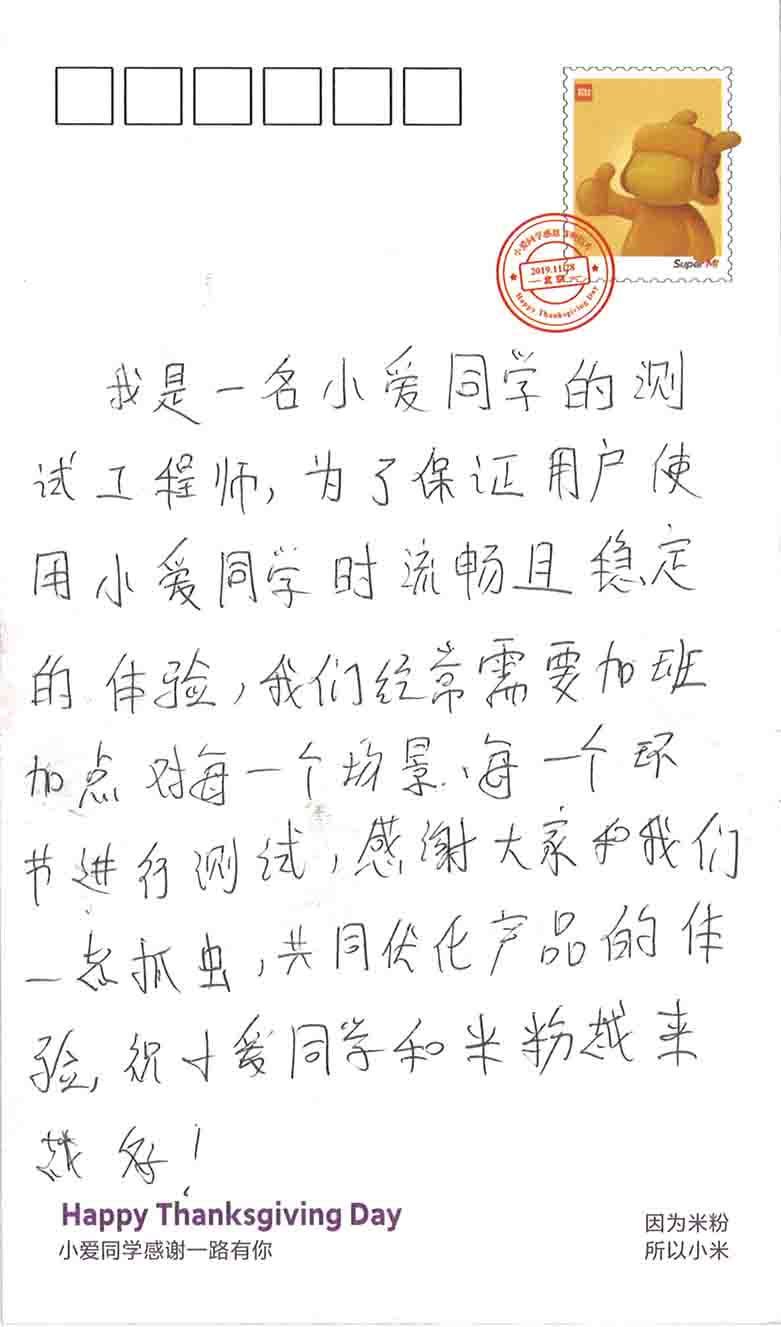 MI
Super MI
小爱同学感恩
2019.11.28
北京
Happy Thanksgiving Day
我是一名小爱同学的测
试工程师,为了保证用户使
用小爱同学时流畅且稳定
的体验,我们经常需要加班
加点对每一个场景、每一个环
节进行测试,感谢大家和我们
一起抓虫,共同优化产品的体
验,祝小爱同学和米粉越来
越好!
Happy Thanksgiving Day
小爱同学感谢一路有你
因为米粉
所以小米